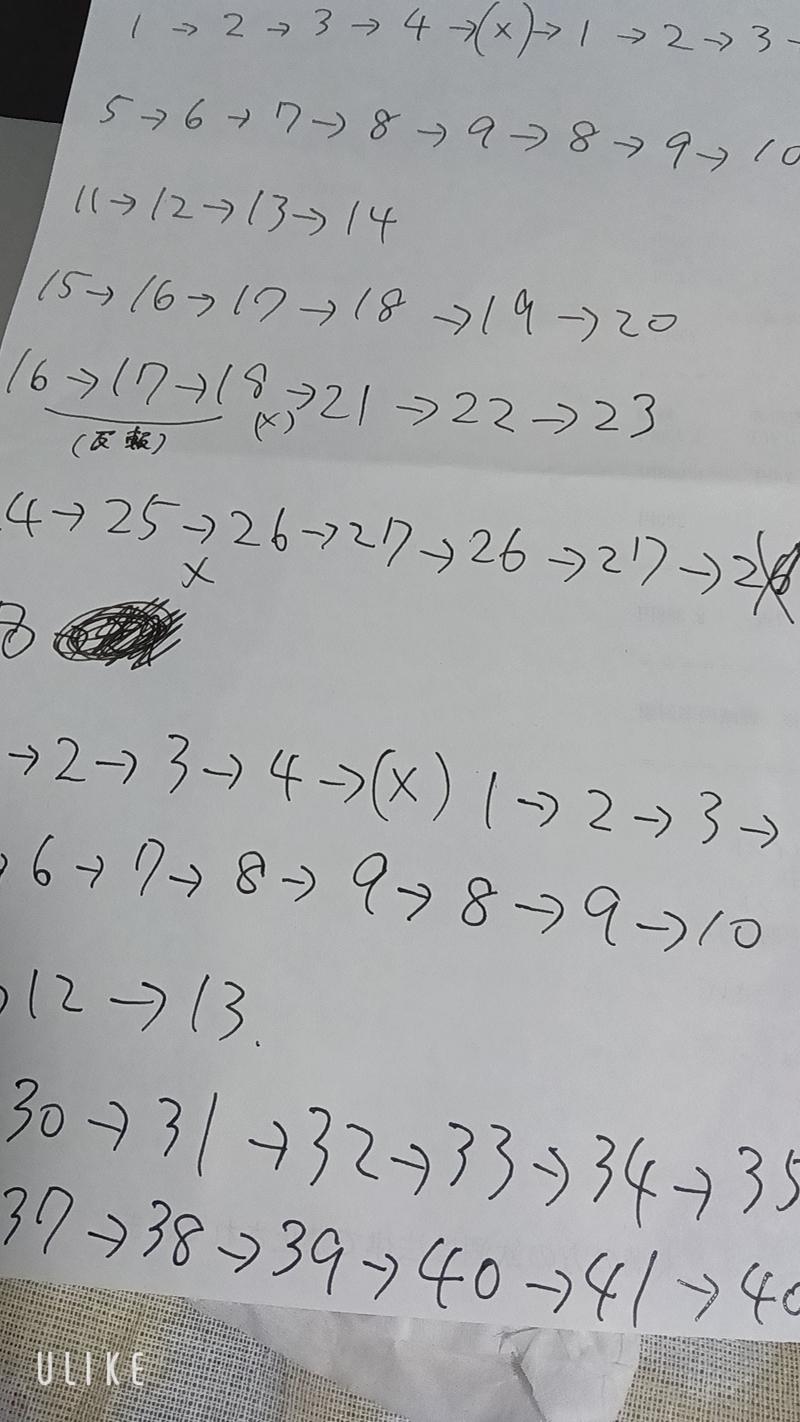 1 → 2 → 3 → 4 →(x)→ 1 → 2 → 3 →
5 → 6 → 7 → 8 → 9 → 8 → 9 → 10
11 → 12 → 13 → 14
15 → 16 → 17 → 18 → 19 → 20
16 → 17 → 18 → 21 → 22 → 23
(x)
4 → 25 → 26 → 27 → 26 → 27 →
x
→ 2 → 3 → 4 →(x) 1 → 2 → 3 →
→ 6 → 7 → 8 → 9 → 8 → 9 → 10
12 → 13.
30 → 31 → 32 → 33 → 34 → 35
37 → 38 → 39 → 40 → 41 → 40
ULIKE